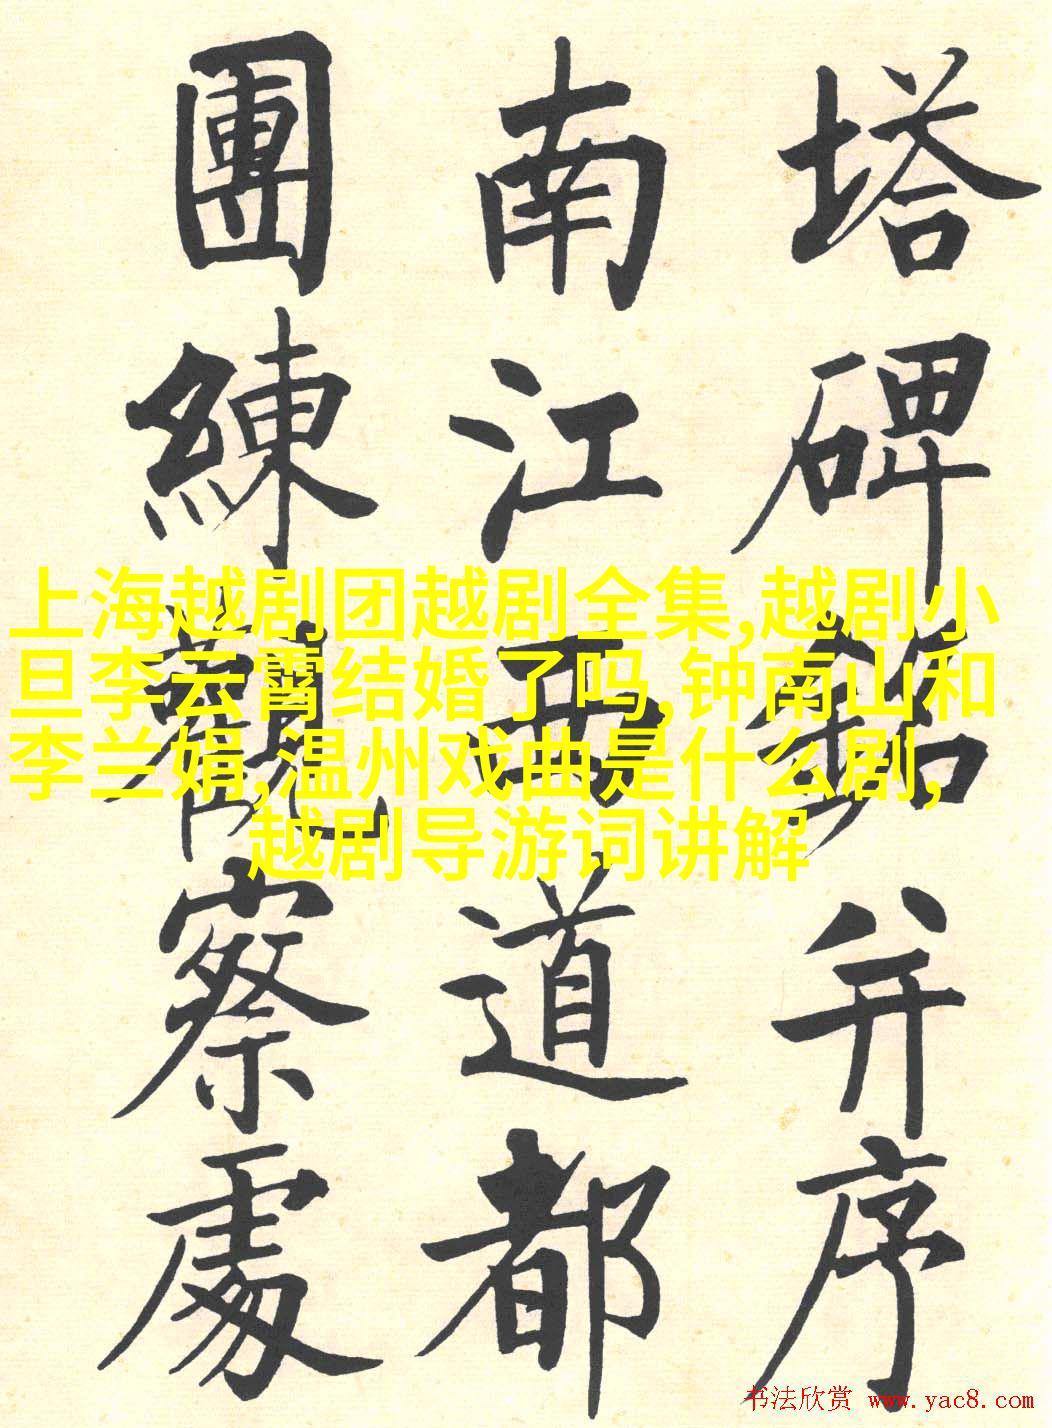 塔碑銘并序
南江西道都
團練觀察處
上海越剧团越剧全集,越剧小
旦李云霄结婚了吗,钟南山和
李兰娟,温州戏曲是什么剧,
越剧导游词讲解
书法欣赏 www.yac8.com